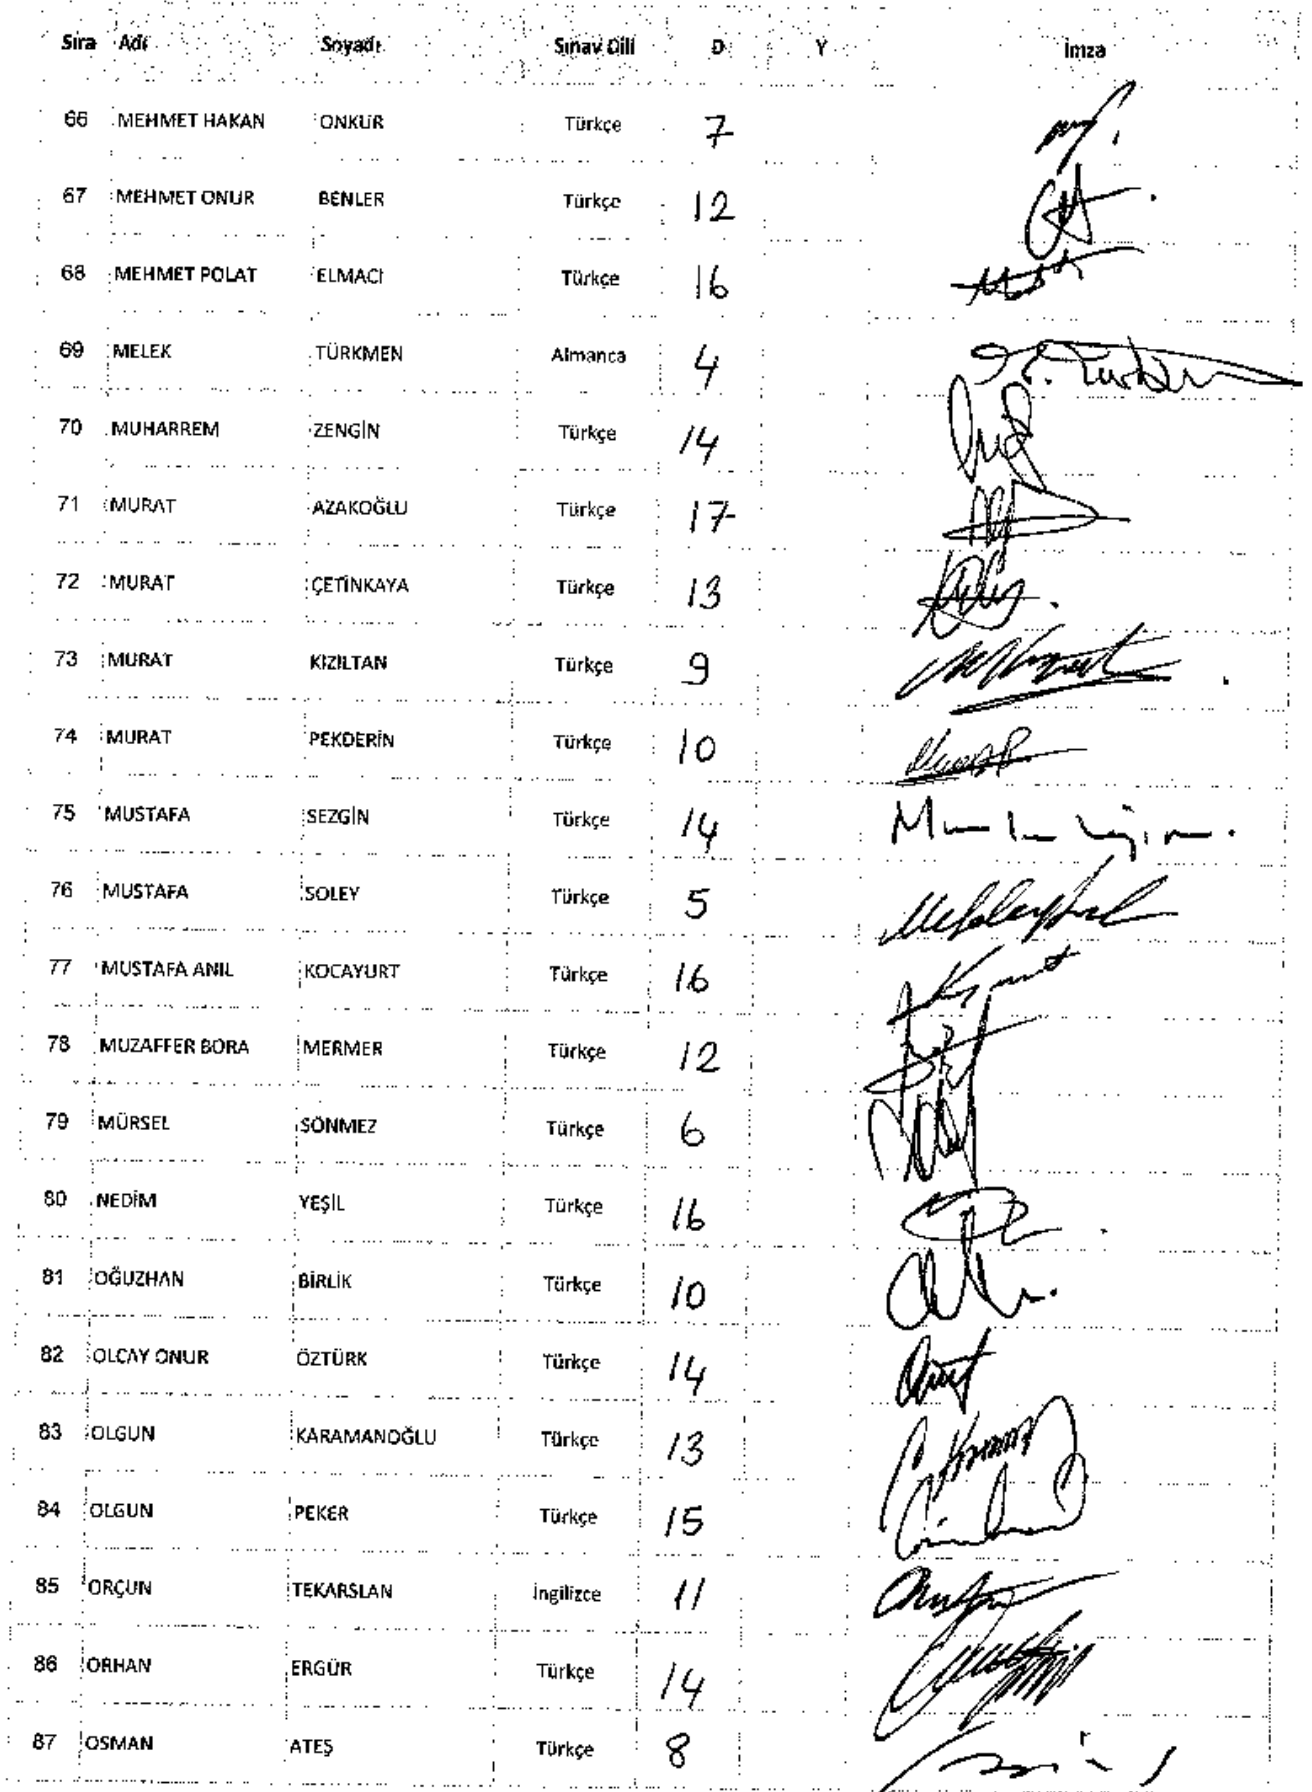 Sıra Adı Soyadı Sınav Dili D Y İmza
66 MEHMET HAKAN ONKUR Türkçe 7
67 MEHMET ONUR BENLER Türkçe 12
68 MEHMET POLAT ELMACI Türkçe 16
69 MELEK TÜRKMEN Almanca 4
70 MUHARREM ZENGİN Türkçe 14
71 MURAT AZAKOĞLU Türkçe 17
72 MURAT ÇETİNKAYA Türkçe 13
73 MURAT KIZILTAN Türkçe 9
74 MURAT PEKDERİN Türkçe 10
75 MUSTAFA SEZGİN Türkçe 14
76 MUSTAFA SOLEY Türkçe 5
77 MUSTAFA ANIL KOCAYURT Türkçe 16
78 MUZAFFER BORA MERMER Türkçe 12
79 MÜRSEL SÖNMEZ Türkçe 6
80 NEDİM YEŞİL Türkçe 16
81 OĞUZHAN BİRLİK Türkçe 10
82 OLCAY ONUR ÖZTÜRK Türkçe 14
83 OLGUN KARAMANOĞLU Türkçe 13
84 OLGUN PEKER Türkçe 15
85 ORÇUN TEKARSLAN İngilizce 11
86 ORHAN ERGÜR Türkçe 14
87 OSMAN ATEŞ Türkçe 8